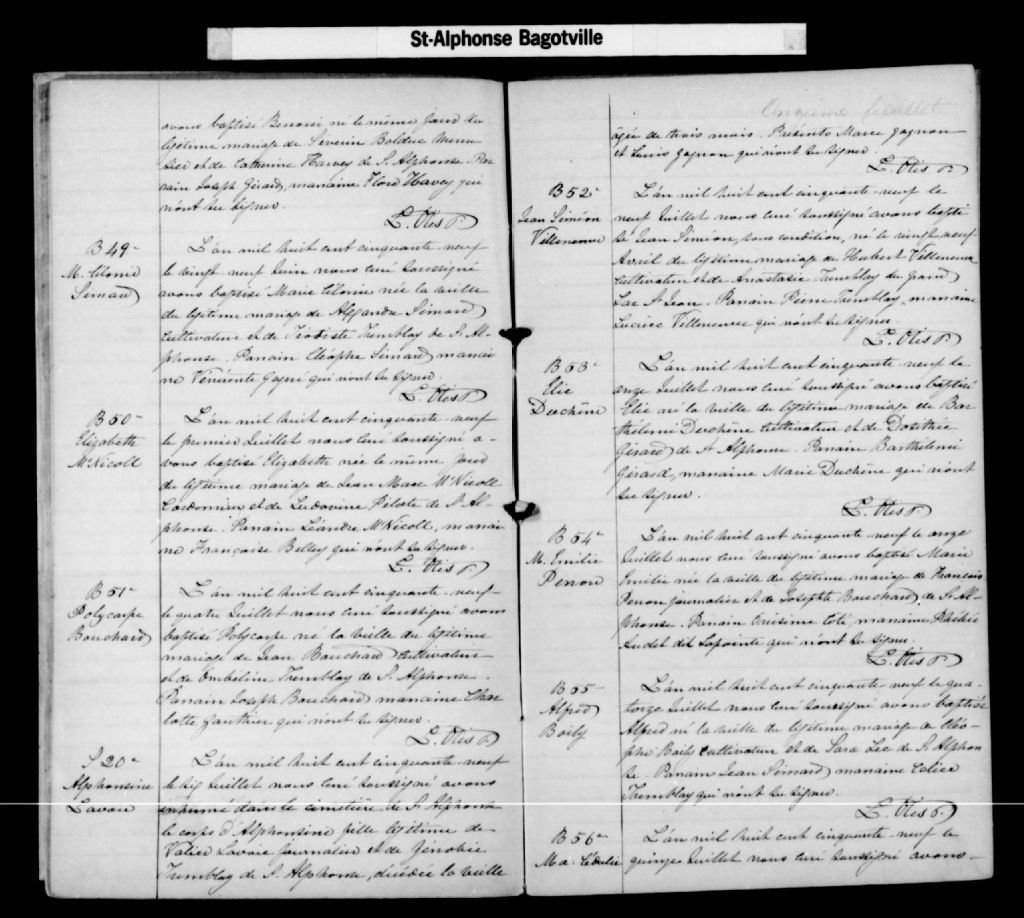 St-Alphonse Bagotville
avons baptisé Benoni né le même jour du
légitime mariage de Séverin Bolduc Menui
sier et de Catherine Harvey de S. Alphonse. Par
rain Joseph Girard, marraine Flore Havey qui
n'ont su signer.
L. Otis P.
B 49e
M. Célonie
Simard
L'an mil huit cent cinquante-neuf
le vingt neuf Juin nous curé soussigné
avons baptisé Marie Célonie née la veille
du légitime mariage de Alexandre Simard
Cultivateur et de Téotiste Tremblay de S. Al-
phonse. Parrain Cléophe Simard marrai
ne Vénérente Gagné qui n'ont su signer.
L. Otis P.
B 50e
Elizabeth
McNicoll
L'an mil huit cent cinquante-neuf
le premier Juillet nous curé soussigné a-
vons baptisé Elizabeth née le même jour
du légitime mariage de Jean Marc McNicoll
Cordonnier et de Ludovine Pilote de S. Al-
phonse. Parrain Léandre McNicoll, marrai
ne Françoise Belley qui n'ont su signer.
L. Otis P.
B 51e
Polycarpe
Bouchard
L'an mil huit cent cinquante-neuf
le quatre Juillet nous curé soussigné avons
baptisé Polycarpe né la veille du légitime
mariage de Jean Bouchard cultivateur
et de Ombéline Tremblay de S. Alphonse.
Parrain Joseph Bouchard marraine Char
lotte Gauthier qui n'ont su signer.
L. Otis P.
S 20e
Alphonsine
Lavoie
L'an mil huit cent cinquante-neuf
le six Juillet nous curé soussigné avons
inhumé dans le cimetière de S. Alphonse
le corps d'Alphonsine fille légitime de
Valier Lavoie journalier et de Zénobie
Tremblay de S. Alphonse, décédée la veille
Onzième feuillet
âgée de trois mois. Présents Marc Gagnon
et Louis Gagnon qui n'ont su signer.
L. Otis P.
B 52e
Jean Siméon
Villeneuve
L'an mil huit cent cinquante-neuf le
neuf Juillet nous curé soussigné avons bapti
sé Jean Siméon, sous condition, né le vingt neuf
Avril du légitime mariage de Hubert Villeneuve
Cultivateur et de Anastasie Tremblay du grand
Lac St Jean. Parrain Pierre Tremblay, marraine
Villeneuve qui n'ont su signer.
L. Otis P.
B 53e
Elie
Duchêne
L'an mil huit cent cinquante-neuf le
onze Juillet nous curé soussigné avons baptisé
Elie né la veille du légitime mariage de Bar
thélemi Duchêne cultivateur et de Dosithée
Girard de St Alphonse. Parrain Barthélemi
Girard, marraine Marie Duchêne qui n'ont
su signer.
L. Otis P.
B 54e
M. Emilie
Perron
L'an mil huit cent cinquante-neuf le onze
Juillet nous curé soussigné avons baptisé Marie
Emilie née la veille du légitime mariage de François
Perron journalier et de Josephte Bouchard de St Al-
phonse. Parrain Onésime Coté, marraine
Audet dit Lapointe qui n'ont su signer.
L. Otis P.
B 55e
Alfred
Boily
L'an mil huit cent cinquante-neuf le qua-
torze Juillet nous curé soussigné avons baptisé
Alfred né la veille du légitime mariage de Cléo-
phe Boily cultivateur et de Sara Lee de S. Alphon
se. Parrain Jean Simard marraine
Tremblay qui n'ont su signer.
L. Otis P.
B 56e
Ma: Cédulie
L'an mil huit cent cinquante-neuf le
quinze Juillet nous curé soussigné avons-